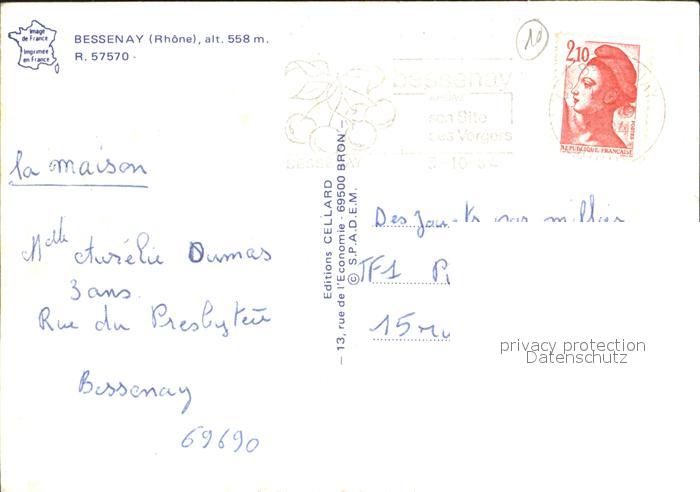 Image
de France
Imprimée
en France
BESSENAY (Rhône), alt. 558 m.
R. 57570 -
10
bessenay
son Site
ses Vergers
BESSENAY
2,10
POSTES
REPUBLIQUE FRANCAISE
la maison
Mlle Aurélie Dumas
3 ans
Rue du Presbytère
Bessenay
69690
Editions CELLARD
– 13, rue de l'Economie - 69500 BRON –
© S.P.A.D.E.M.
Des par millier
TF1
15
privacy protection
Datenschutz